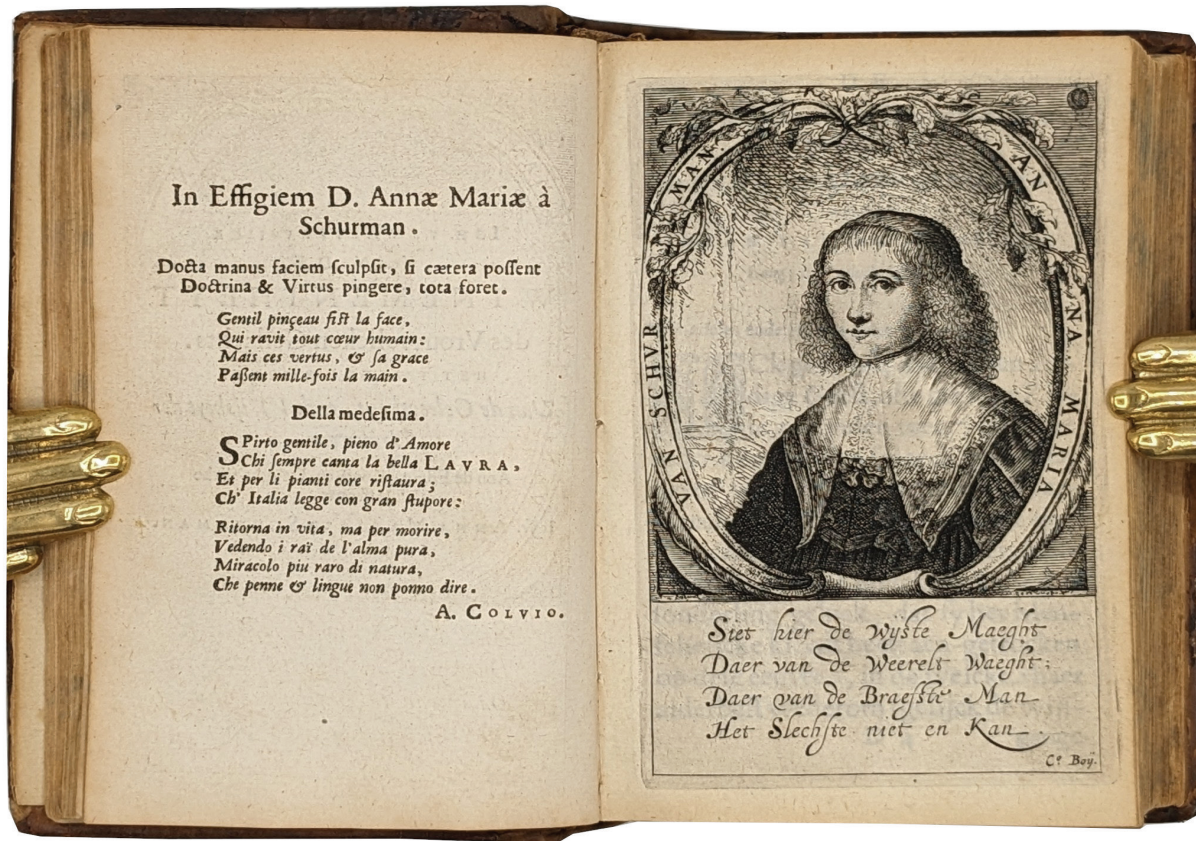 In Effigiem D. Annæ Mariæ à
Schurman.
Docta manus faciem ſculpſit, ſi cætera poſſent
Doctrina & Virtus pingere, tota foret.
Gentil pinçeau fiſt la face,
Qui ravit tout cœur humain:
Mais ces vertus, & ſa grace
Paßent mille-fois la main.
Della medeſima.
SPirto gentile, pieno d'Amore
Chi ſempre canta la bella LAVRA,
Et per li pianti core riſtaura;
Ch' Italia legge con gran ſtupore:
Ritorna in vita, ma per morire,
Vedendo i raï de l'alma pura,
Miracolo piu raro di natura,
Che penne & lingue non ponno dire.
A. COLVIO.
ANNA MARIA VAN SCHVRMAN.
Siet hier de wijſte Maeght
Daer van de Weerelt Waeght;
Daer van de Braefſte Man
Het Slechſte niet en Kan.
C° Boÿ.